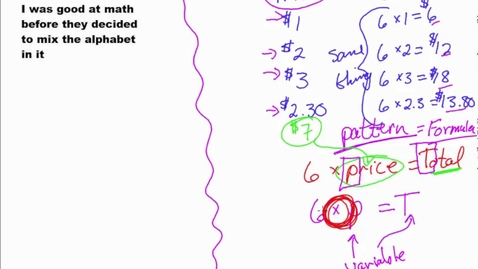 I was good at math
before they decided
to mix the alphabet
in it
$1
6 × 1 = $6
$2
same
6 × 2 = $12
$3
thing
6 × 3 = $18
$2.30
6 × 2.3 = $13.80
$7
pattern = Formula
6 × price = Total
6 × p = T
variable